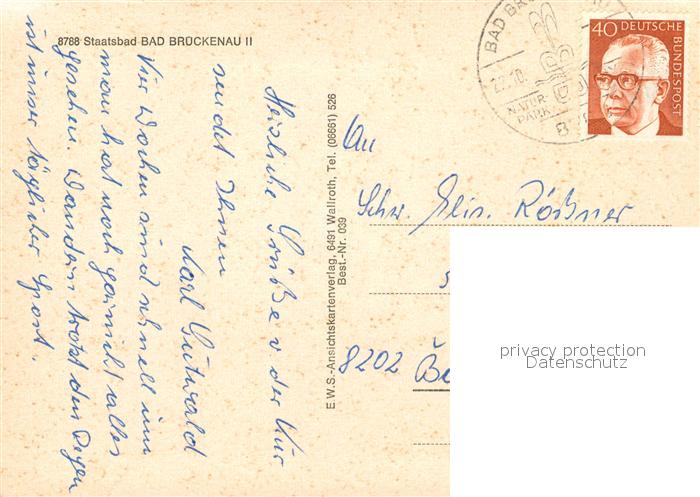 8788 Staatsbad BAD BRÜCKENAU II
Herzliche Grüße v der Kur
sendet Ihnen
Karl Gutwald
Vier Wochen sind schnell um
man hat noch garnicht alles
gesehen. Wandern trotz den Regen
ist unser täglicher Sport.
E.W.S.-Ansichtskartenverlag, 6491 Wallroth, Tel. (06661) 526
Best.-Nr. 039
BAD BR
NATUR
PARK
40 DEUTSCHE
BUNDESPOST
An
Schw. Elis. Rößner
8202 Ba
privacy protection
Datenschutz